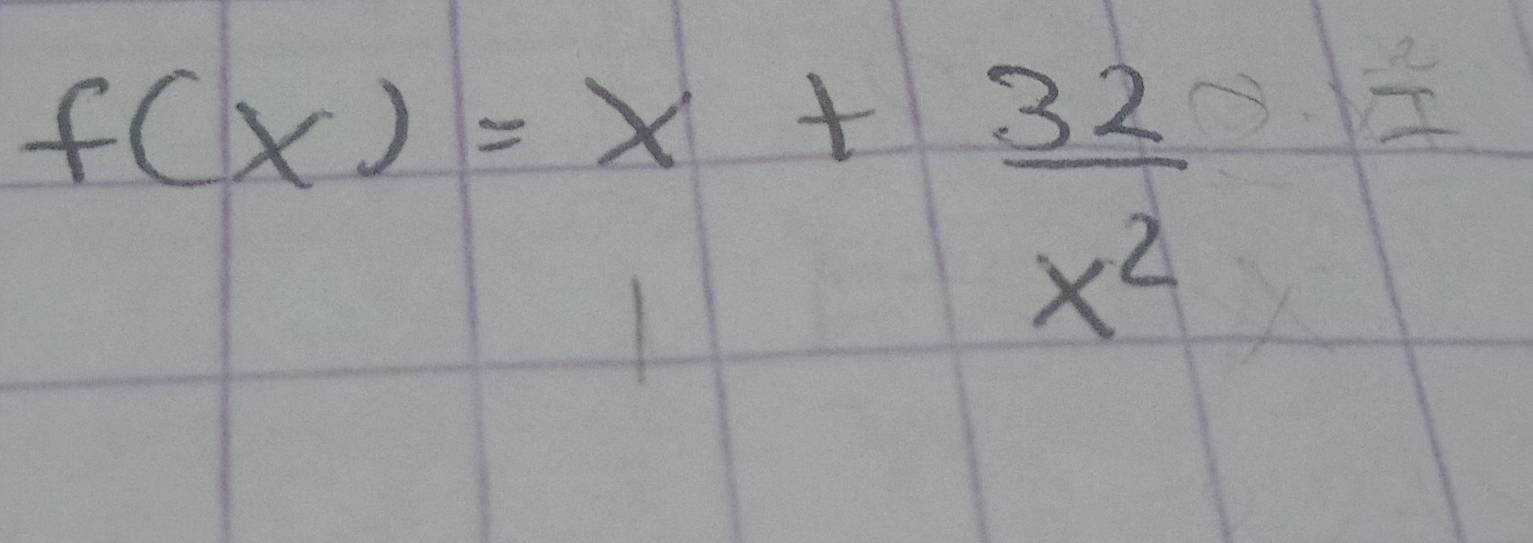 f(x) = x + 32/x²
1